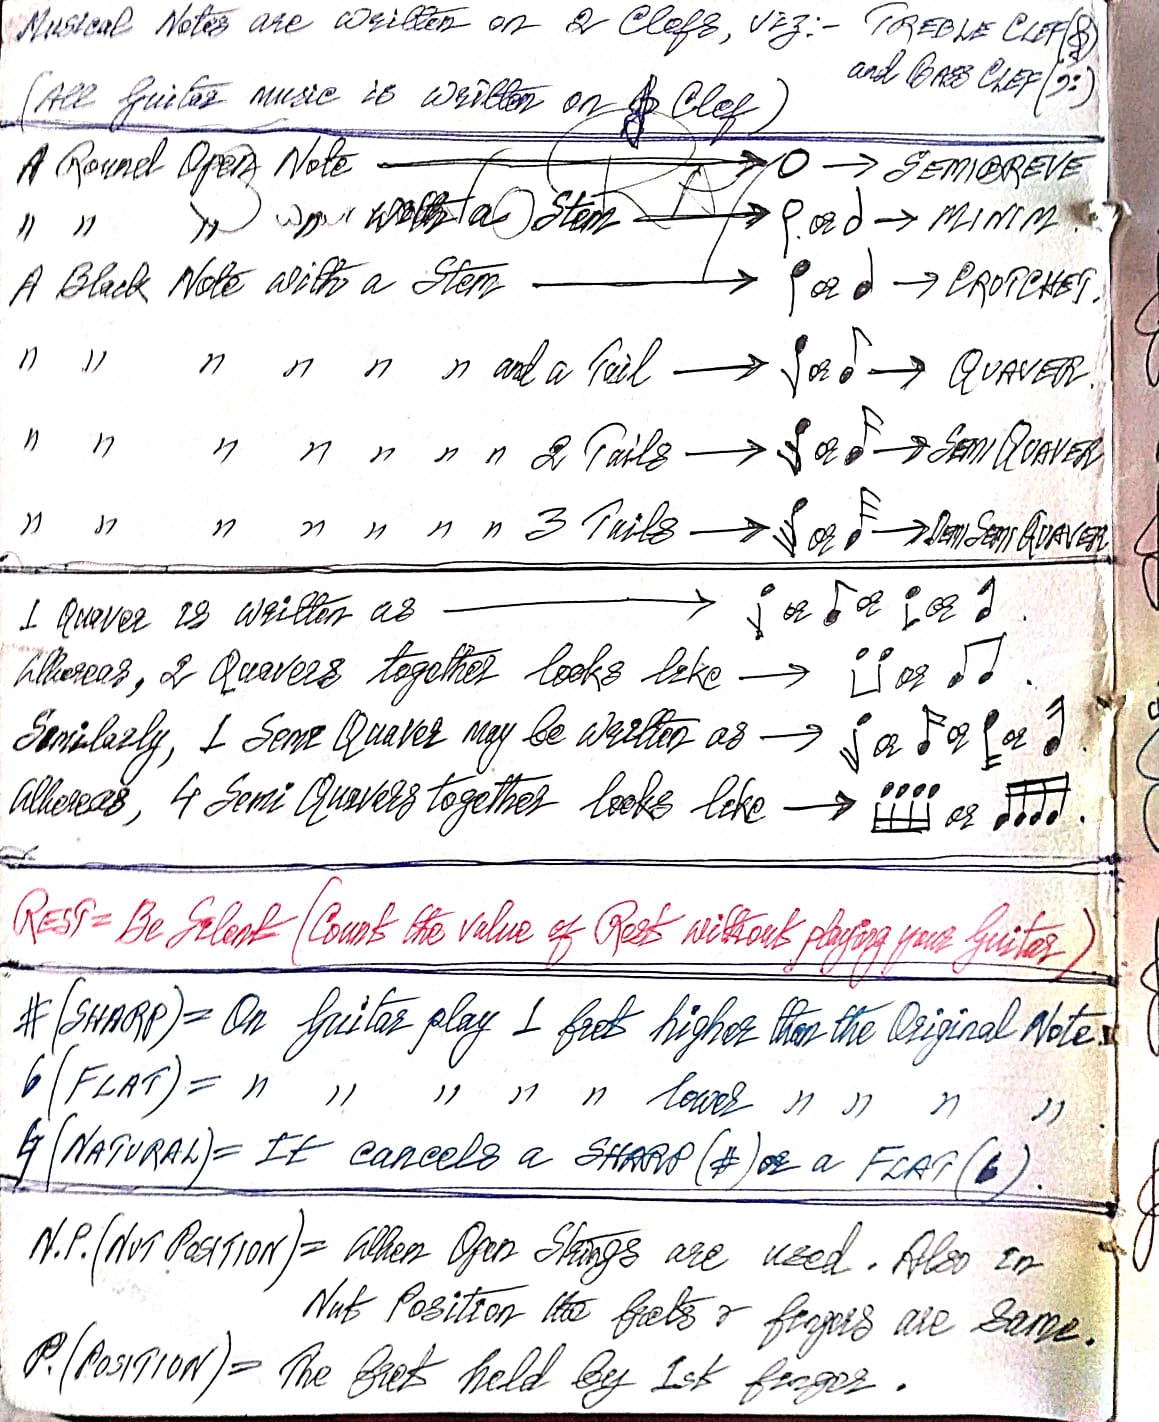 Musical Notes are written on 2 Clefs, viz:- TREBLE CLEF (𝄞)
and BASS CLEF (𝄢)
(All Guitar music is written on 𝄞 Clef)
A Round Open Note → O → SEMIBREVE
" " " " with a Stem → or → MINIM.
A Black Note with a Stem → or → CROTCHET.
" " " " " " and a Tail → or → QUAVER.
" " " " " " " 2 Tails → or → SEMI QUAVER
" " " " " " " 3 Tails → or → DEMI SEMI QUAVER
1 Quaver is written as → or ♪ or or .
Whereas, 2 Quavers together looks like → or ♫ .
Similarly, 1 Semi Quaver may be written as → or or or .
Whereas, 4 Semi Quavers together looks like → or .
REST = Be Silent (Count the value of Rest without playing your Guitar)
# (SHARP) = On Guitar play 1 fret higher than the Original Note.
b (FLAT) = " " " " " lower " " " " .
♮ (NATURAL) = It cancels a SHARP (#) or a FLAT (b).
N.P. (NUT POSITION) = When Open Strings are used. Also in
Nut Position the frets & fingers are same.
P. (POSITION) = The fret held by 1st finger.